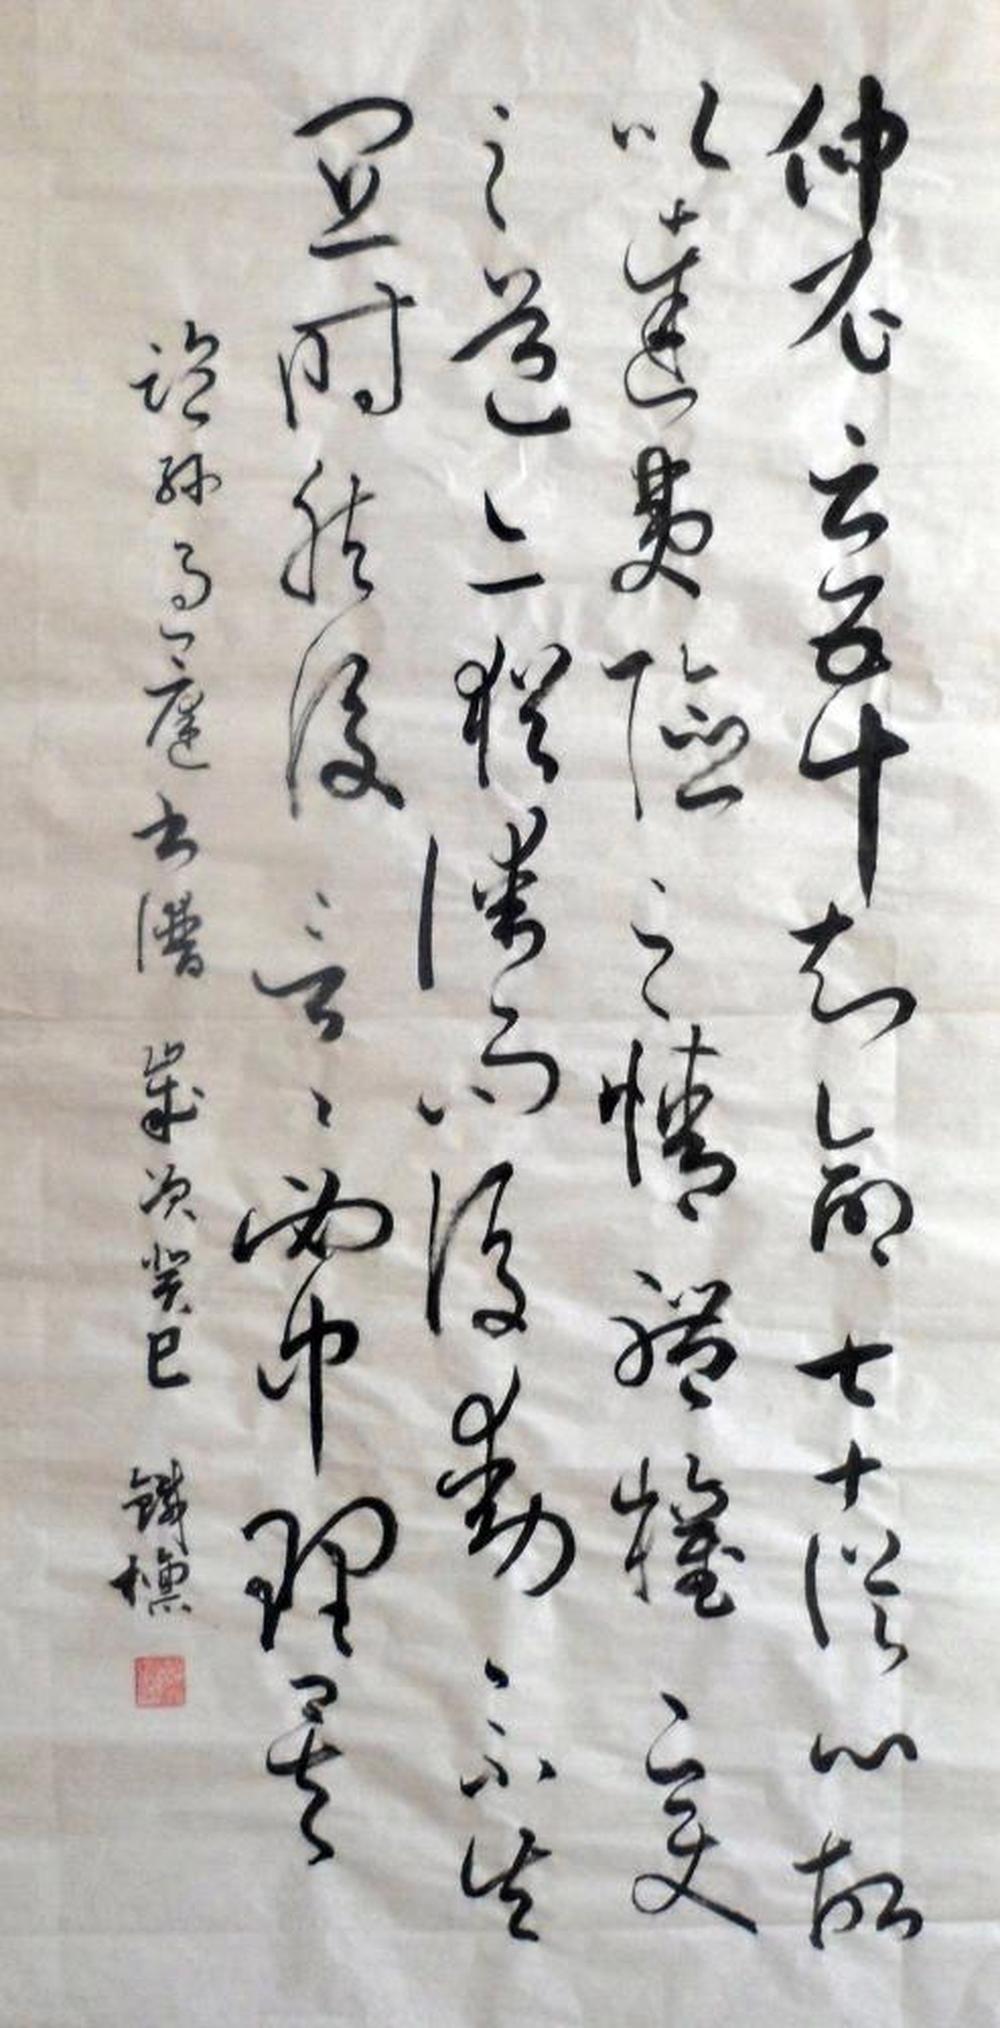 仲尼云五十知命七十從心故
以達夷險之情體權變
之道亦猶謀而後動不失
宜時然後言〻必中理矣
臨孫過庭書譜 歲次癸巳 鐵標